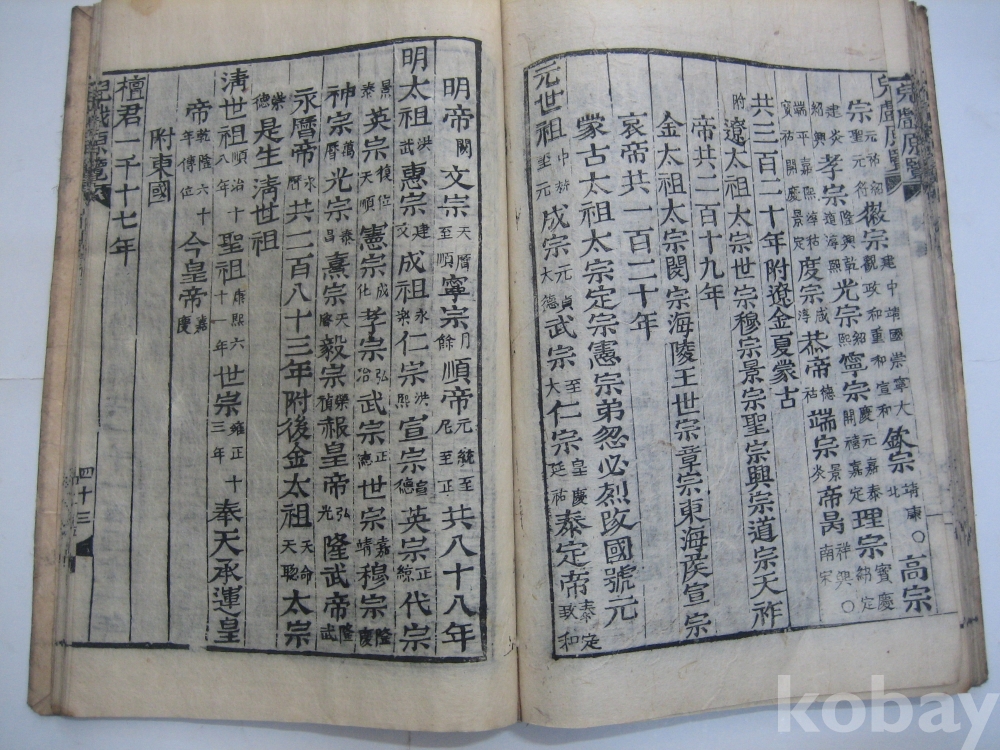 兒戲原覽
宗元祐紹聖元符徽宗建中靖國崇寧大觀政和重和宣和欽宗靖康〇北高宗
建炎紹興孝宗隆興乾道淳熙光宗紹熙寧宗慶元嘉泰開禧嘉定理宗寶慶紹定
端平嘉熙淳祐寶祐開慶景定度宗咸淳恭帝德祐端宗景炎帝昺祥興〇南宋
共三百二十年附遼金夏蒙古
附遼太祖太宗世宗穆宗景宗聖宗興宗道宗天祚
帝共二百十九年
金太祖太宗閔宗海陵王世宗章宗東海侯宣宗
哀帝共一百二十年
蒙古太祖太宗定宗憲宗弟忽必烈改國號元
元世祖中統至元成宗元貞大德武宗至大仁宗皇慶延祐泰定帝泰定致和
明帝闕文宗天曆至順寧宗月餘順帝元統至元至正共八十八年
明太祖洪武惠宗建文成祖永樂仁宗洪熙宣宗宣德英宗正統代宗
景泰英宗復位天順憲宗成化孝宗弘治武宗正德世宗嘉靖穆宗隆慶
神宗萬曆光宗泰昌熹宗天啓毅宗崇禎赧皇帝弘光隆武帝隆武
永曆帝永曆共二百八十三年附後金太祖天命天聰太宗
崇德是生清世祖
清世祖順治十八年聖祖康熙六十一年世宗雍正十三年奉天承運皇
帝乾隆六十年傳位今皇帝嘉慶
附東國
檀君一千十七年
兒戲原覽
四十三
kobay